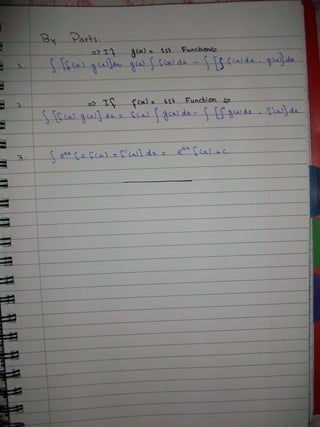 By Parts.
=> If g(x) = 1st Function
1. ∫ [f(x). g(x)]dx = g(x) ∫ f(x) dx - ∫ [∫ f(x) dx . g'(x)] dx
2. => If f(x) = 1st Function
∫ [f(x). g(x)] dx = f(x) ∫ g(x) dx - ∫ [∫ g(x) dx . f'(x)] dx
3. ∫ e^ax [a f(x) + f'(x)] dx = e^ax f(x) + c